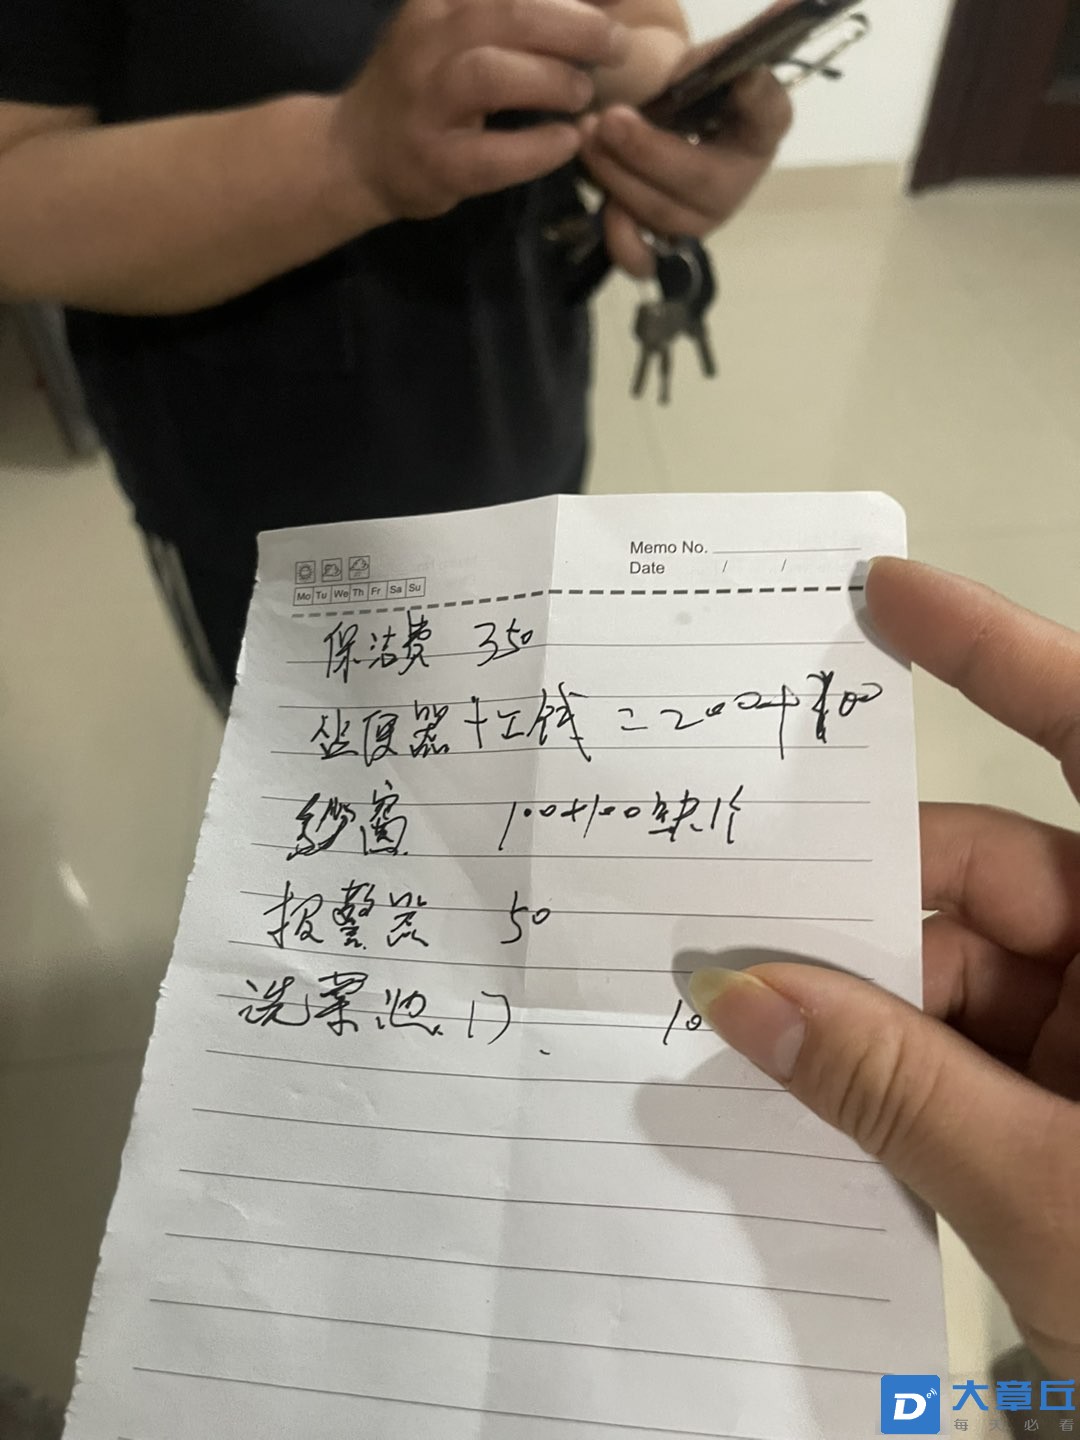 Memo No.
Date / /
Mo Tu We Th Fr Sa Su
保洁费 350
坐便器+工钱=200+100
纱窗 100+100缺1个
报警器 50
洗菜池门 10
D 大章丘
每天必看